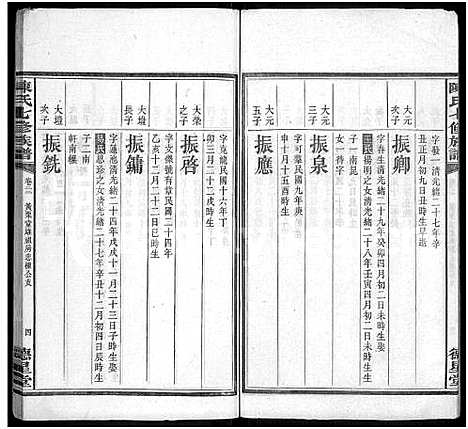 陳氏七修族譜
德星堂
大元三子
振卿
字發一清光緒二十
四月初九日丑時生早逝
大元四子
振泉
字春生清光緒二十九年癸卯四月初三日子時生娶
楊明之女清光緒二十八年壬寅四月初二日卯時生
子一南昆
大元五子
振應
字光國民國九年庚
申十月十五酉時生
大榮次子
振啓
字克龍民國十六年丁
卯三月二十二日戌時生
大塏長子
振鏞
字文傑號有章民國二十四年
乙亥二月二十二日巳時生
大塏次子
振銑
字蓮池清光緒二十四年戊戌十一月二十三日子時生娶
恩珍之女清光緒二十七年辛丑十二月初四日辰時生
子二南
軒南樞
陳氏七修族譜
卷三
四
德星堂